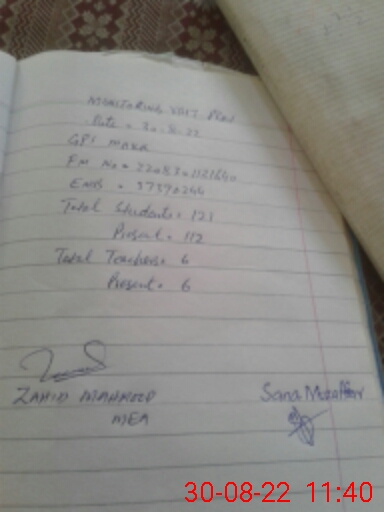 MONITORING VISIT
Date = 30-8-22
GPS
EM No =
EMIS = 37370244
Total Students = 121
Present = 112
Total Teachers = 6
Present = 6
ZAHID MAHMOOD
MEA
Sana Muzaffar
30-08-22 11:40